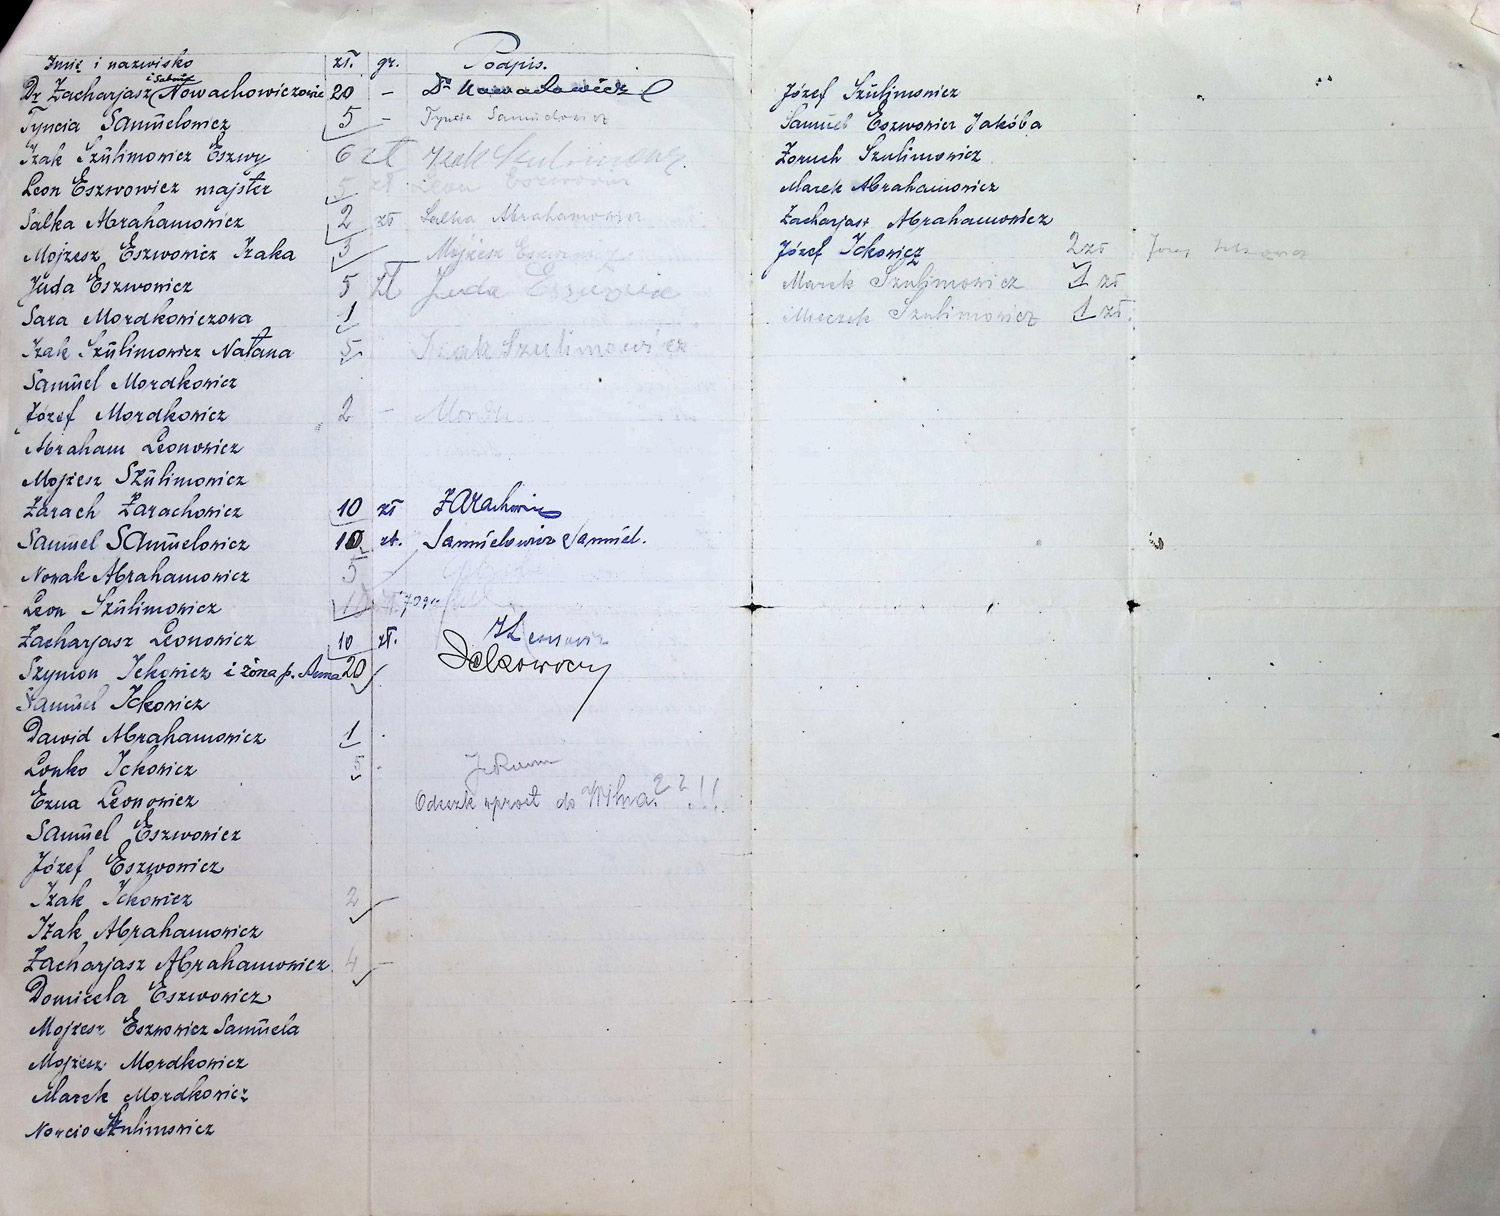 Imię i nazwisko zł. gr. Podpis.
i Sabiny
Dr Zacharjasz Nowachowiczowie 20 - Dr Nawachowicz
Tyncia Samuelowicz 5 - Tyncia Samuelowicz
Izak Szulimowicz Eszwy 6 zł Izak Szulimowicz
Leon Eszwowicz majster 5 zł Leon Eszwowicz
Sałka Abrahamowicz 2 zł Sałka Abrahamowicz
Mojżesz Eszwowicz Izaka 3 - Mojżesz Eszwowicz
Juda Eszwowicz 5 zł Juda Eszwowicz
Sara Mordkowiczowa 1
Izak Szulimowicz Natana 5 Izak Szulimowicz
Samuel Mordkowicz
Józef Mordkowicz 2 -
Abraham Leonowicz
Mojżesz Szulimowicz
Zarach Zarachowicz 10 zł Zarachowicz
Samuel Samuelowicz 10 zł. Samuelowicz Samuel.
Nowak Abrahamowicz 5
Leon Szulimowicz 1 zł
Zacharjasz Leonowicz 10 zł. Leonowicz
Szymon Ickowicz i żona p. Anna 20 Ickowiczy
Samuel Ickowicz
Dawid Abrahamowicz 1 .
Lonko Ickowicz 5 -
Ezua Leonowicz wprost do Wilna. ? ? !!
Samuel Eszwowicz
Józef Eszwowicz
Izak Ickowicz 2 -
Izak Abrahamowicz
Zacharjasz Abrahamowicz 4 -
Domicela Eszwowicz
Mojżesz Eszwowicz Samuela
Mojżesz Mordkowicz
Marek Mordkowicz
Norcio Szulimowicz
Józef Szulimowicz
Samuel Eszwowicz Jakóba
Zoruch Szulimowicz
Marek Abrahamowicz
Zacharjasz Abrahamowicz
Józef Ickowicz 2 zł
Marek Szulimowicz 1 zł
Mieczek Szulimowicz 1 zł.